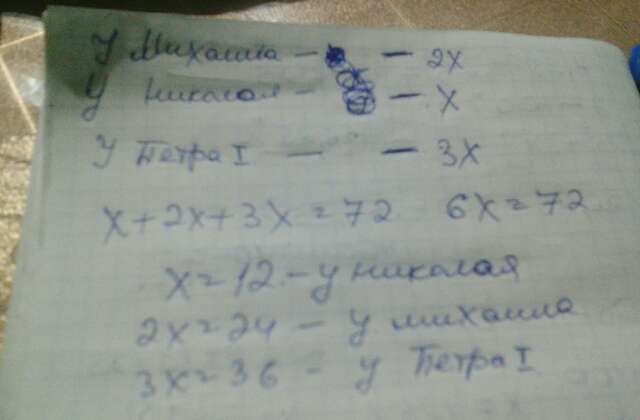 У Михаила — — 2х
У Николая — — х
У Петра I — — 3х
х+2х+3х=72 6х=72
х=12 - у николая
2х=24 - у михаила
3х=36 - у Петра I